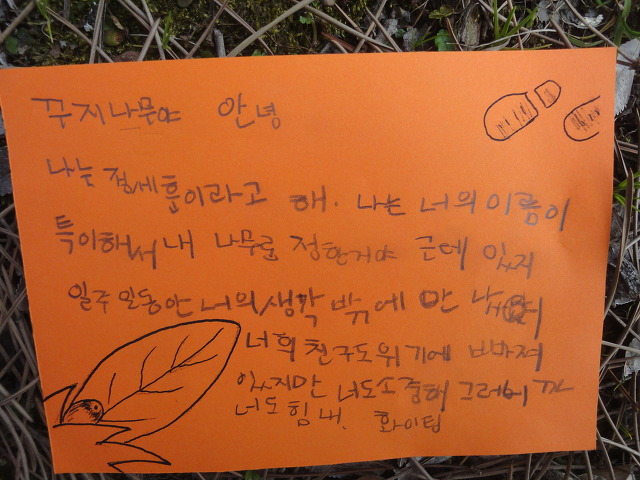 꾸지나무야 안녕
나는 정세훈이라고 해. 나는 너의 이름이
특이해서 내 나무로 정한거야 근데 있지
일주일동안 너의 생각 밖에 안 나
너희 친구도 위기에 빠져
있지만 너도 소중해 그러니까
너도 힘내. 화이팅